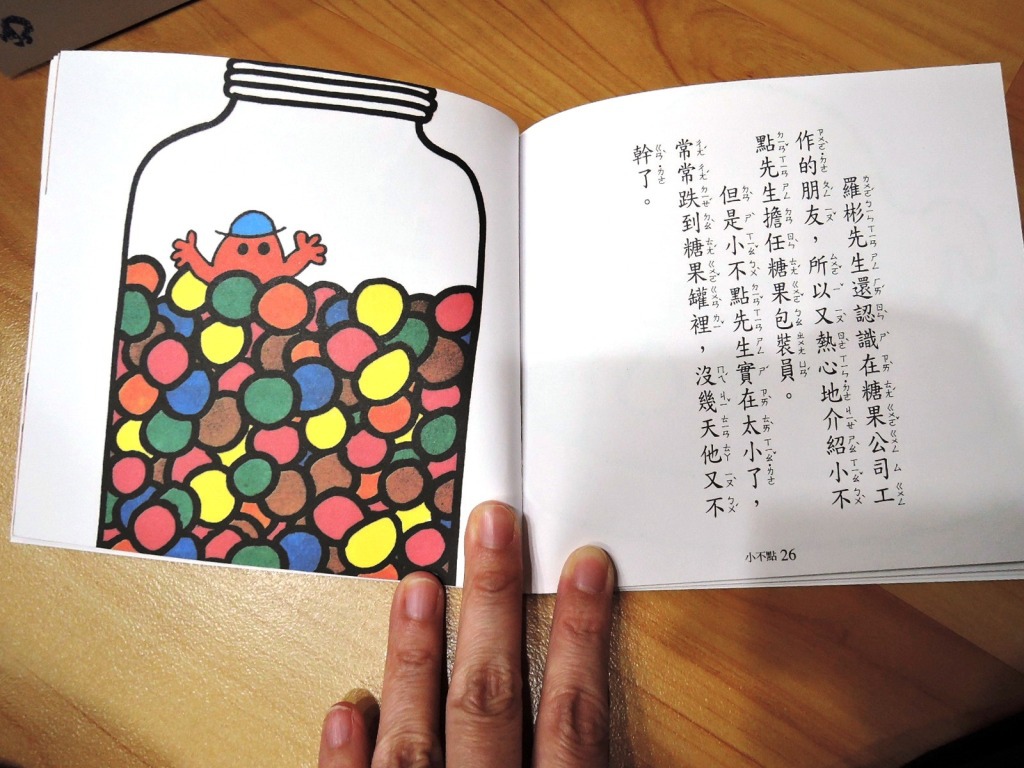 羅彬先生還認識在糖果公司工
作的朋友，所以又熱心地介紹小不
點先生擔任糖果包裝員。
但是小不點先生實在太小了，
常常跌到糖果罐裡，沒幾天他又不
幹了。
小不點 26